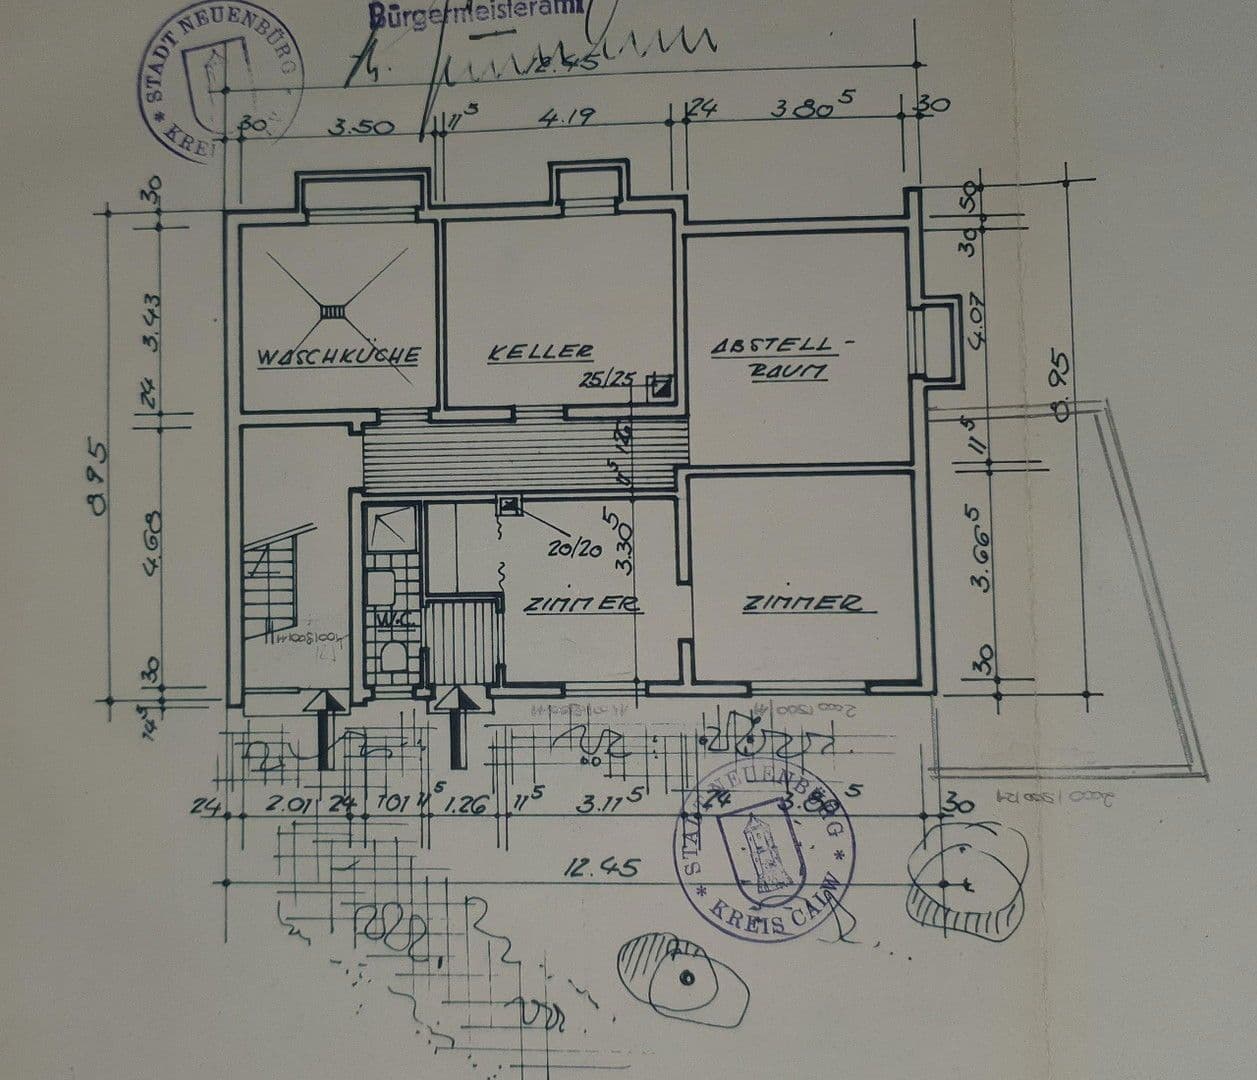 Bürgermeisteramt
* STADT NEUENBÜRG
KREI
12.45
30 3.50 11⁵ 4.19 24 3.80⁵ 30
30
50
30
3.43
4.07
WASCHKÜCHE
KELLER
ABSTELL-
RAUM
25/25
24
8.95
11⁵
1.26
11⁵
8.95
4.68
3.30⁵
20/20
3.66⁵
ZIMMER
ZIMMER
W.C.
30
30
14⁵
24 2.01 24 1.01 11⁵ 1.26 11⁵ 3.11⁵ 24 3.80⁵ 30
12.45
STADT NEUENBÜRG *
* KREIS CALW